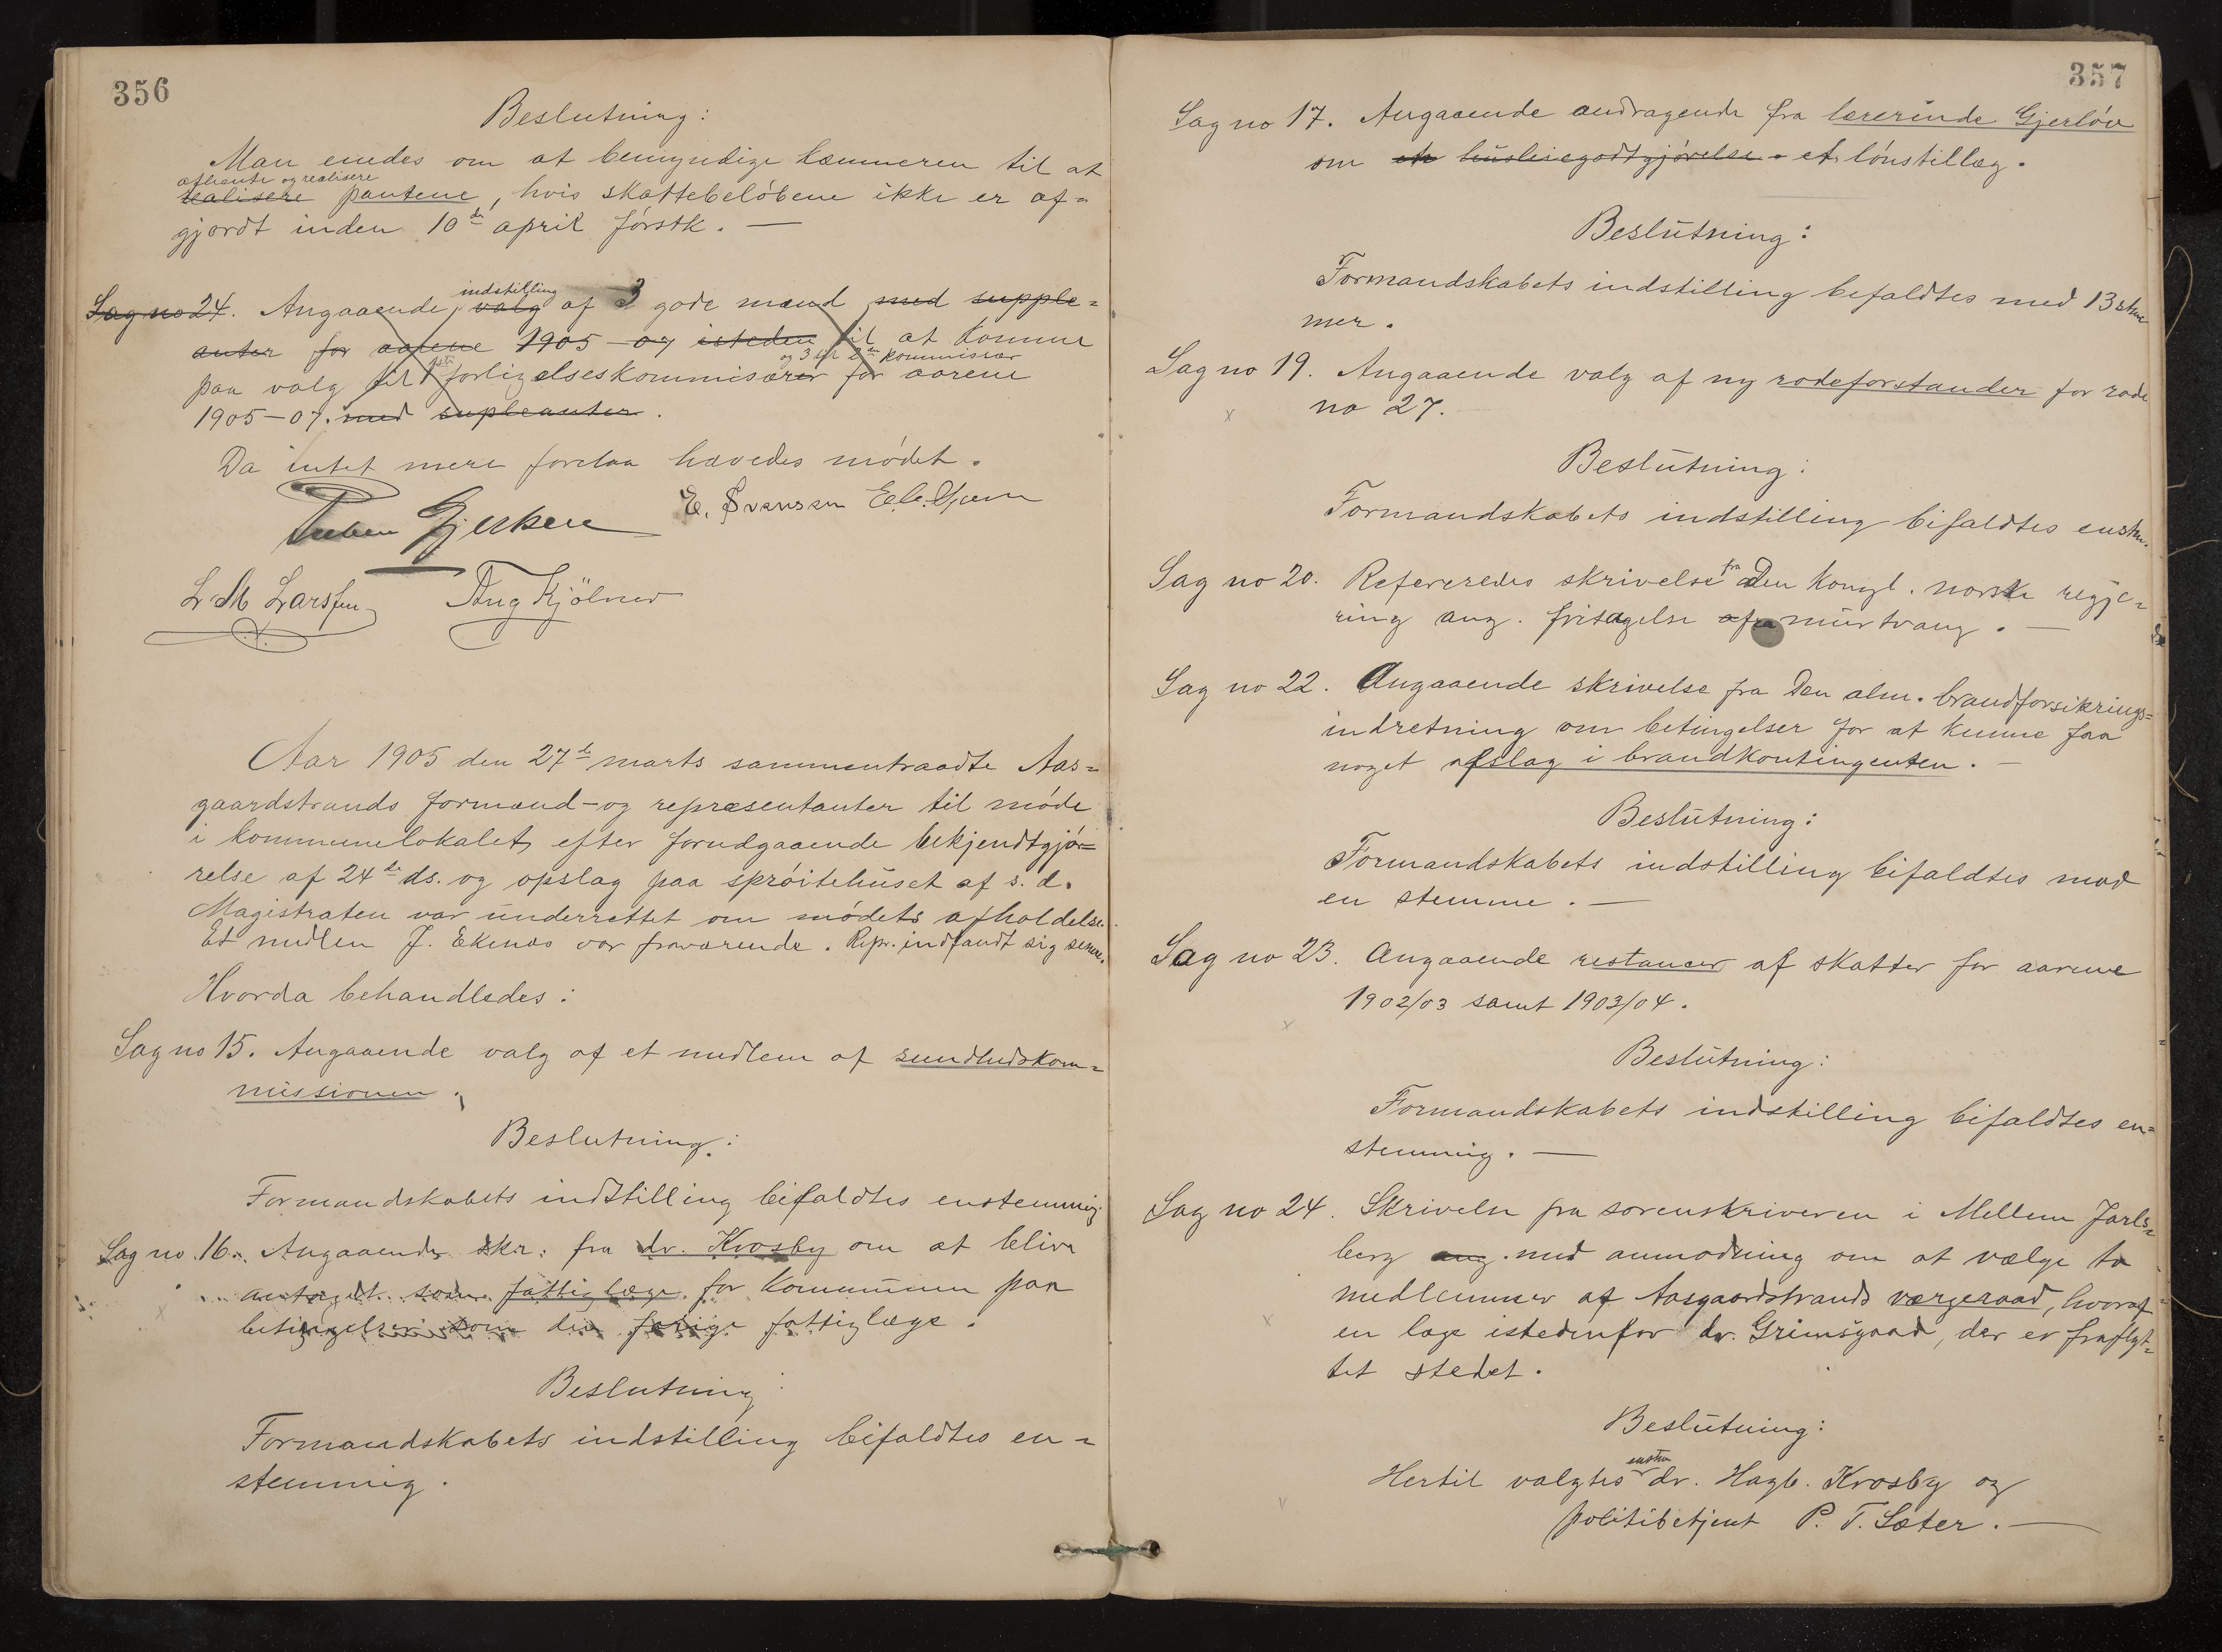 356
Beslutning:
Man enedes om at bemyndige kæmneren til at
afhente og realisere
realisere pantene, hvis skattebeløbene ikke er af=
gjordt inden 10de april førstk. —
Sag no 24. Angaaende indstilling valg af 3 gode mænd med supple=
anter for aarene 1905-07 isteden til at komme
og 3 til 2den kommissær
paa valg til 1ste forligelseskommisærer for aarene
1905-07. med supleanter.
Da intet mere forelaa hævedes mødet.
E. Svensen
L. M. Larssen Aug Kjölner
Aar 1905 den 27de marts sammentraadte Aas=
gaardstrands formænd- og repræsentanter til møde
i kommunelokalet, efter forudgaaende bekjendtgjø=
relse af 24de ds. og opslag paa sprøitehuset af s. d.
Magistraten var underrettet om mødets afholdelse.
Et medlem J. Ekenæs var fraværende. Repr. indfandt sig senere.
Hvorda behandledes:
Sag no 15. Angaaende valg af et medlem af sundhedskom=
missionen.
Beslutning:
Formandskabets indstilling bifaldtes enstemmig.
Sag no 16. Angaaende skr. fra dr. Krosby om at blive
antaget som fattiglæge for kommunen paa
betingelser som den forige fattiglæge.
Beslutning:
Formandskabets indstilling bifaldtes en=
stemmig.
357
Sag no 17. Angaaende andragende fra lærerinde Gjerløv
om et husleiegodtgjørelse. et lønstillæg.
Beslutning:
Formandskabets indstilling befaldtes med 13 stem
mer.
Sag no 19. Angaaende valg af ny rodeforstander for rode
no 27.
Beslutning:
Formandskabets indstilling bifaldtes enstm.
Sag no 20. Refereredes skrivelse fra Den kongl. norske regje=
ring ang. fritagelse fra murtvang. —
Sag no 22. Angaaende skrivelse fra Den alm. brandforsikrings=
indretning om betingelser for at kunne faa
noget afslag i brandkontingenten. —
Beslutning:
Formandskabets indstilling bifaldtes mod
en stemme. —
Sag no 23. Angaaende restancer af skatter for aarene
1902/03 samt 1903/04.
Beslutning:
Formandskabets indstilling bifaldtes en=
stemmig. —
Sag no 24. Skrivelse fra sorenskriveren i Mellem Jarls=
berg ang. med anmodning om at vælge to
medlemmer af Aasgaardstrands værgeraad, hvoraf
en læge istedenfor dr. Grimsgaard, der er fraflyt=
tet stedet.
Beslutning:
enstm
Hertil valgtes dr. Hagb. Krosby og
politibetjent P. T. Sæter. —